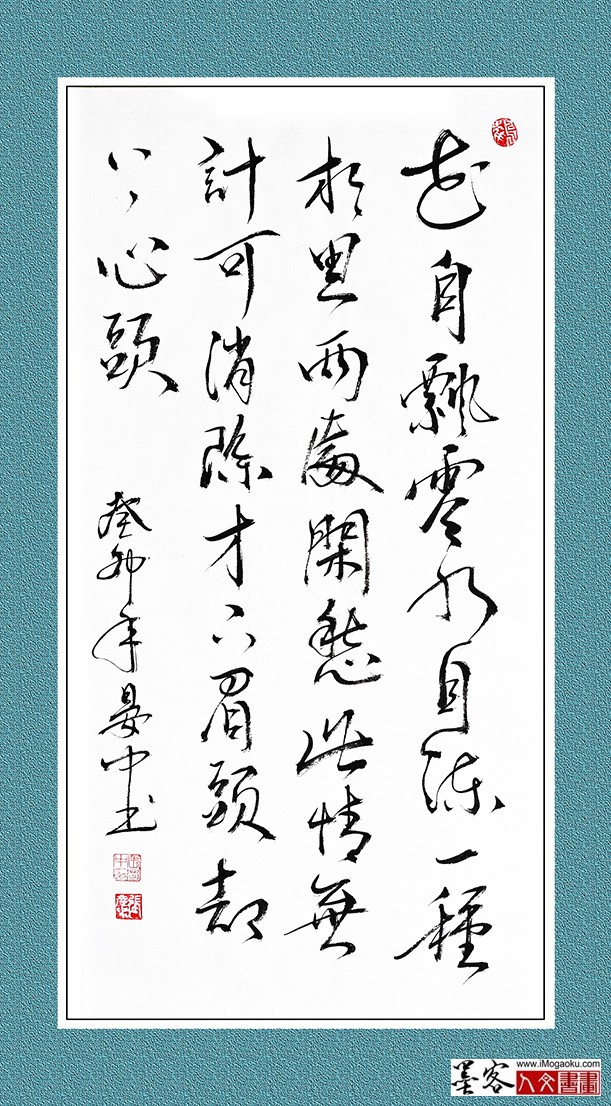 花自飄零水自流一種
相思兩處閑愁此情無
計可消除才下眉頭却
上心頭
癸卯年晏中书
墨客
www.iMogaoku.com
人文書畫